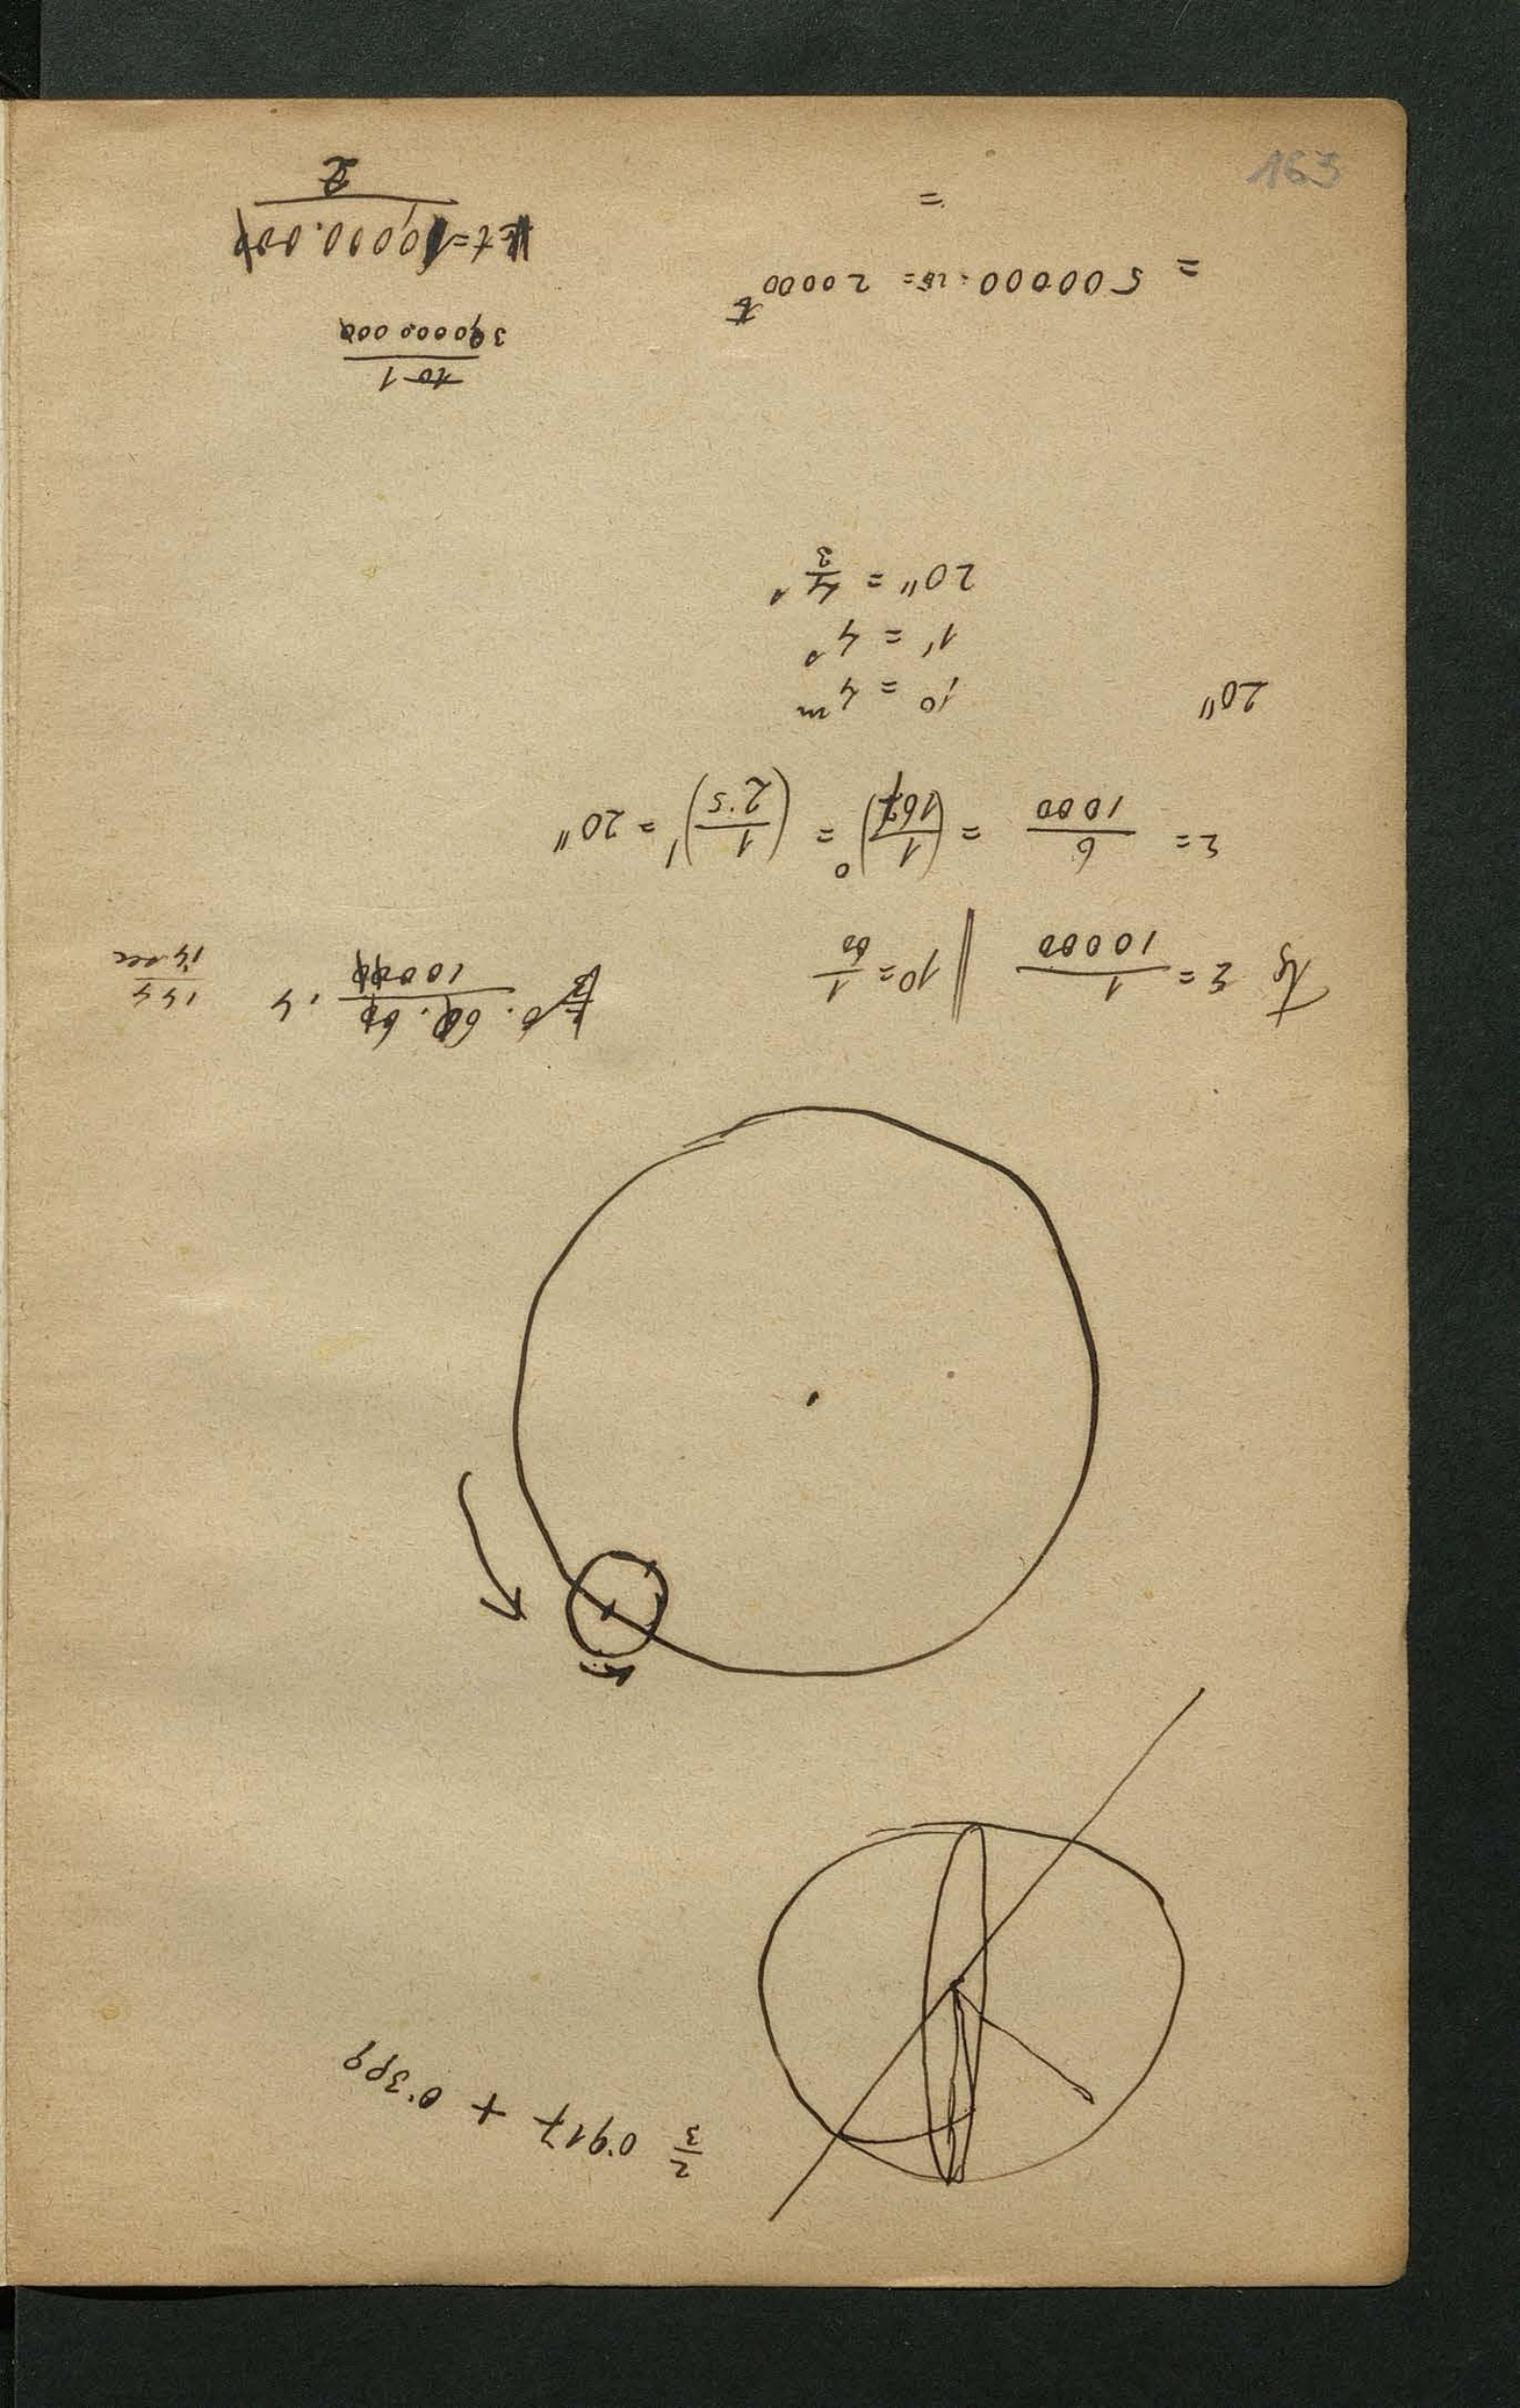 163
2/3 0.917 + 0.399
tg ξ = 1/10000 || 1° = 1/60
6. 60. 60/10000 . 4
144/14 sec
ξ = 6/1000 = (1/167)° = (1/2.5)' = 20"
20"
1° = 4m
1' = 4s
20" = 4/3 s
10 1/300000.000
= 500000 : 25 = 20000
t = 10000.000/2
=